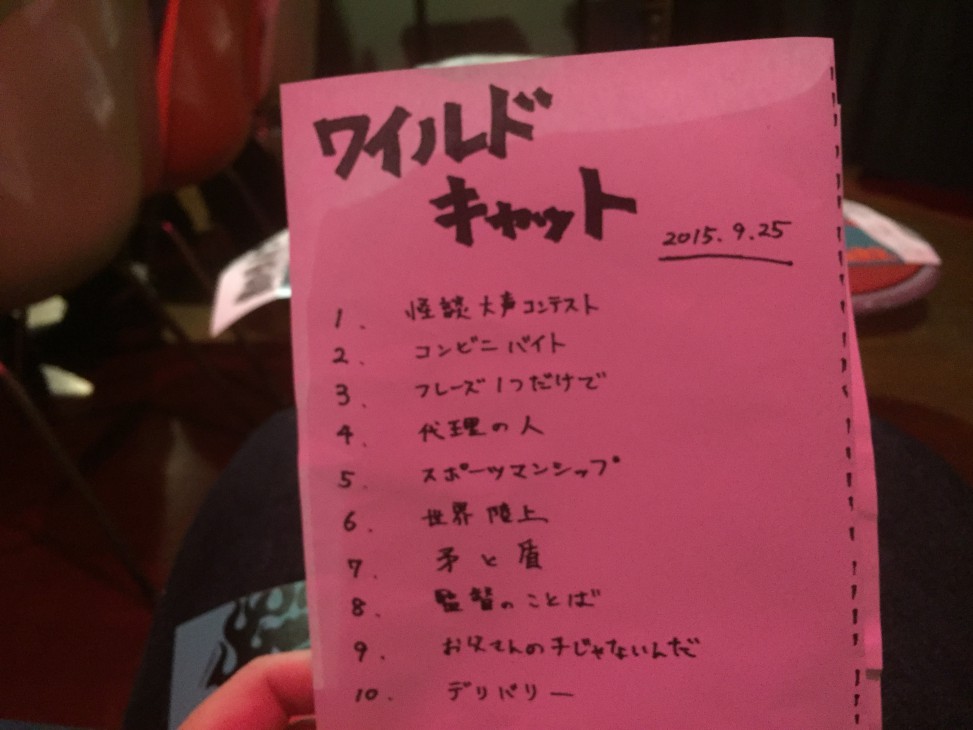 ワイルド
キャット
2015.9.25
1. 怪談大声コンテスト
2. コンビニバイト
3. フレーズ1つだけで
4. 代理の人
5. スポーツマンシップ
6. 世界陸上
7. 矛と盾
8. 監督のことば
9. お父さんの子じゃないんだ
10. デリバリー